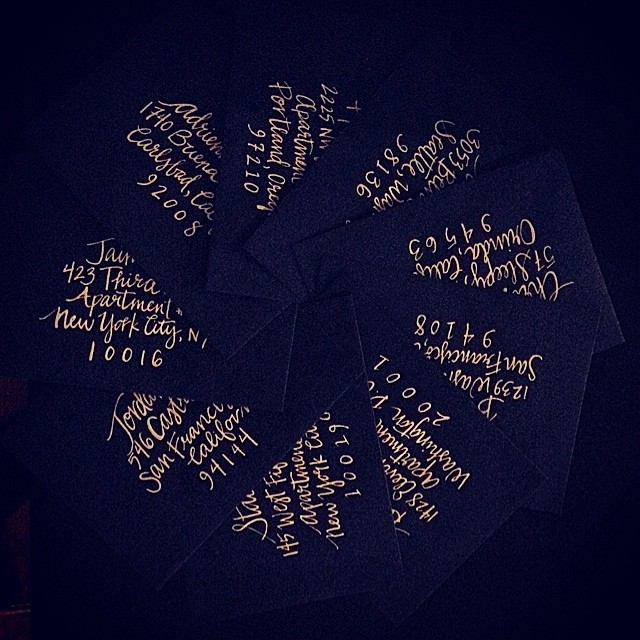 Adrian
1740 Buena
Carlsbad Ca
92008
2225 N
Apartmen
Portland Oreg
97210
3055
Seattle, Was
98136
57 Sleepy
Orinda, Calif
94563
1239 Was
San Francisco, C
94108
Apartment
Washington D
20001
145 West
Apartment
New York Ci
10019
Jorda
546 Castr
San Francisc
Californ
94144
Jam
423 Third
Apartment
New York City, N
10016